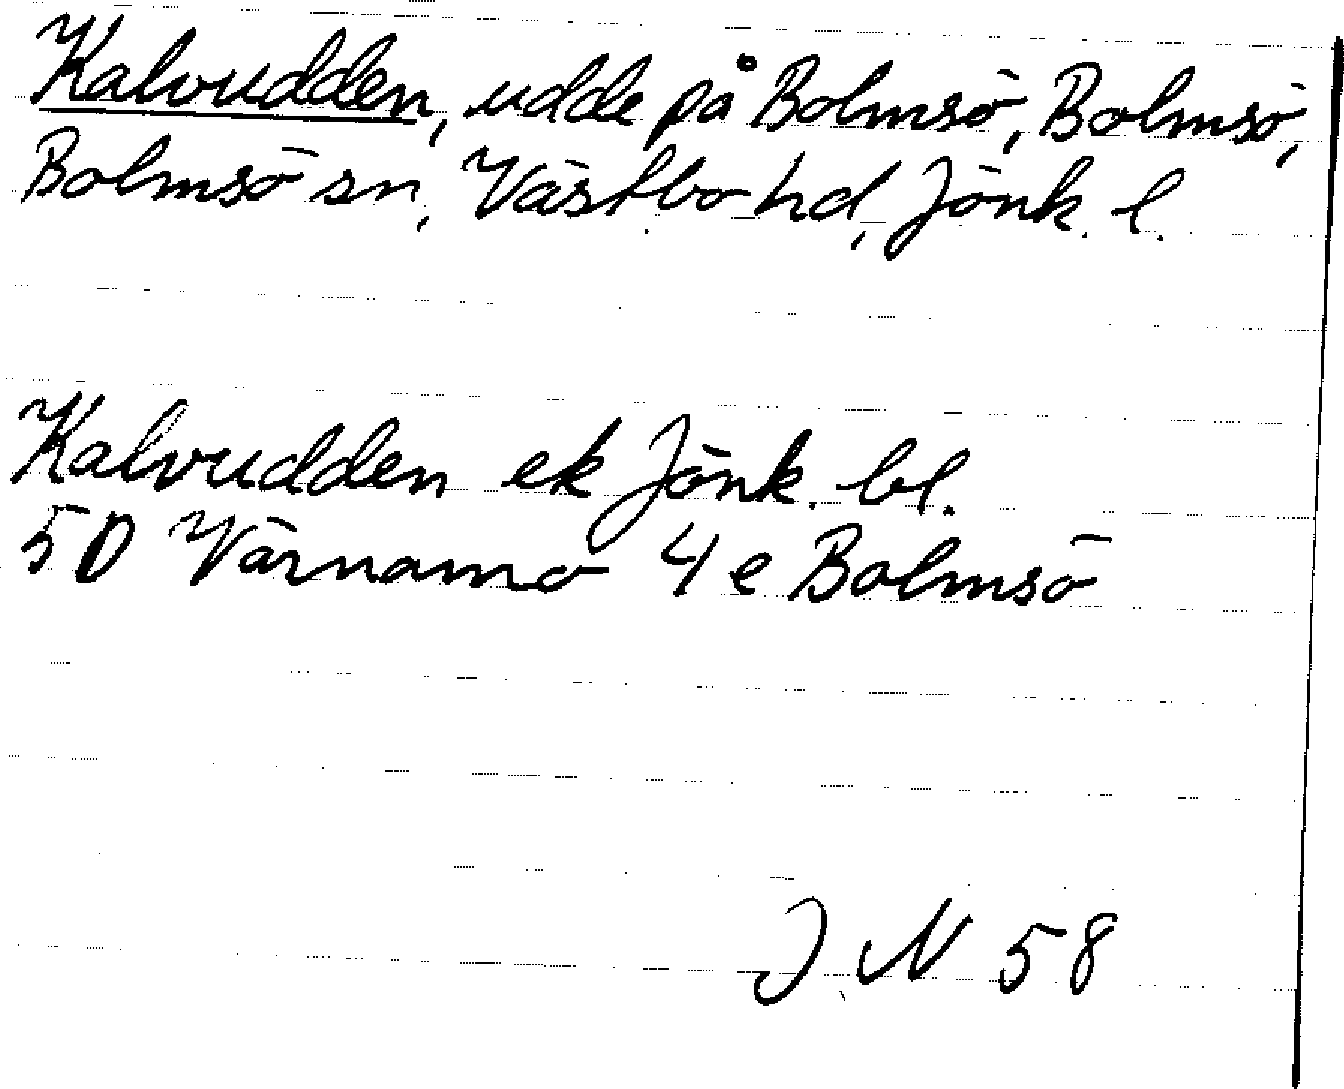 Kalvudden, udde på Bolmsö, Bolmsö,
Bolmsö sn, Västbo hd, Jönk. l.
Kalvudden ek Jönk. bl.
5D Värnamo 4e Bolmsö
J. N 58